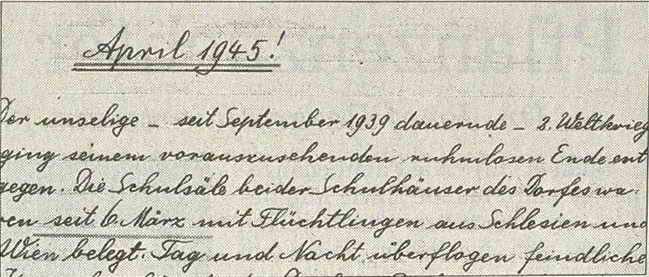 April 1945!
Der unselige – seit September 1939 dauernde – 2. Weltkrieg
ging seinem vorauszusehenden ruhmlosen Ende ent
gegen. Die Schulsäle beider Schulhäuser des Dorfes wa-
ren seit 6. März mit Flüchtlingen aus Schlesien und
Wien belegt. Tag und Nacht überflogen feindliche